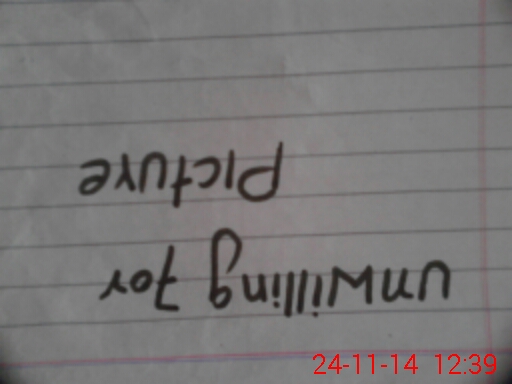 unwilling for
Picture
24-11-14 12:39